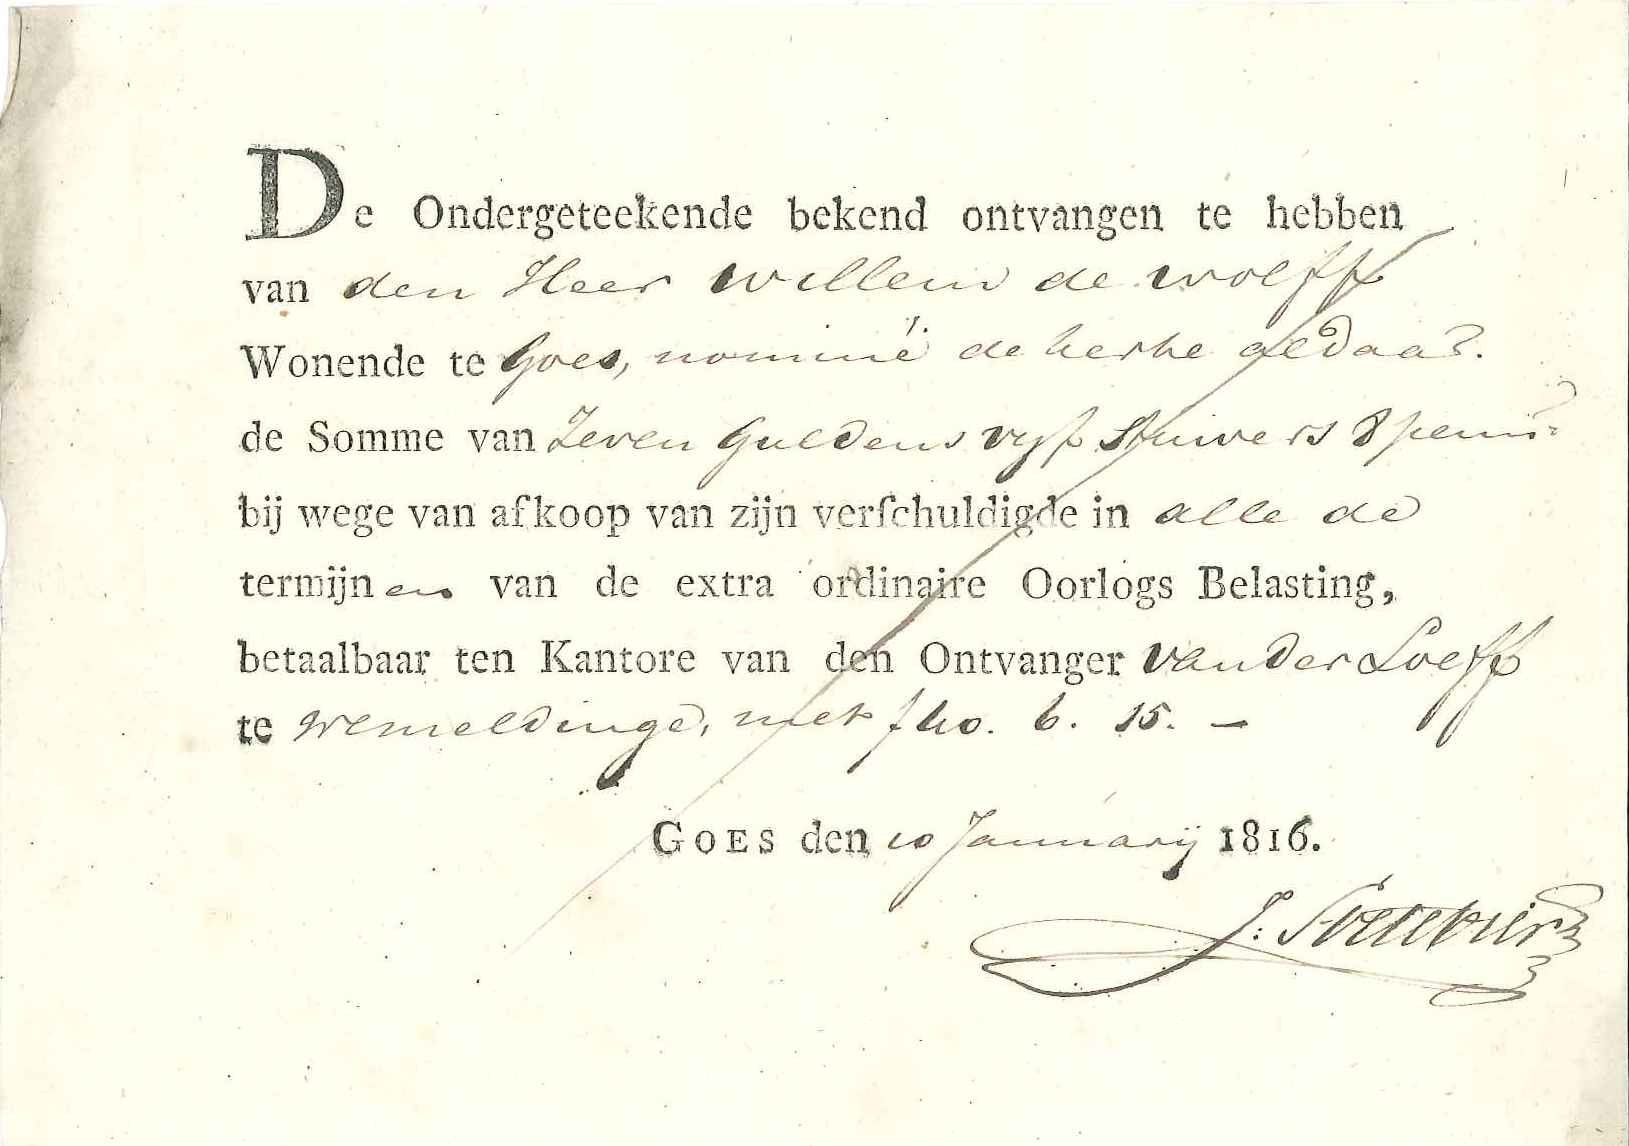 De Ondergeteekende bekend ontvangen te hebben
van den Heer Willem de wolff
Wonende te Goes, nominé de kerke aldaar.
de Somme van Zeven Guldens vyf Stuivers 8 penn:
bij wege van afkoop van zijn verſchuldigde in alle de
termijnen van de extra ordinaire Oorlogs Belasting,
betaalbaar ten Kantore van den Ontvanger van der Loeff
te Wemeldinge, met 6. 15. —
GOES den 10 Januarij 1816.
J: